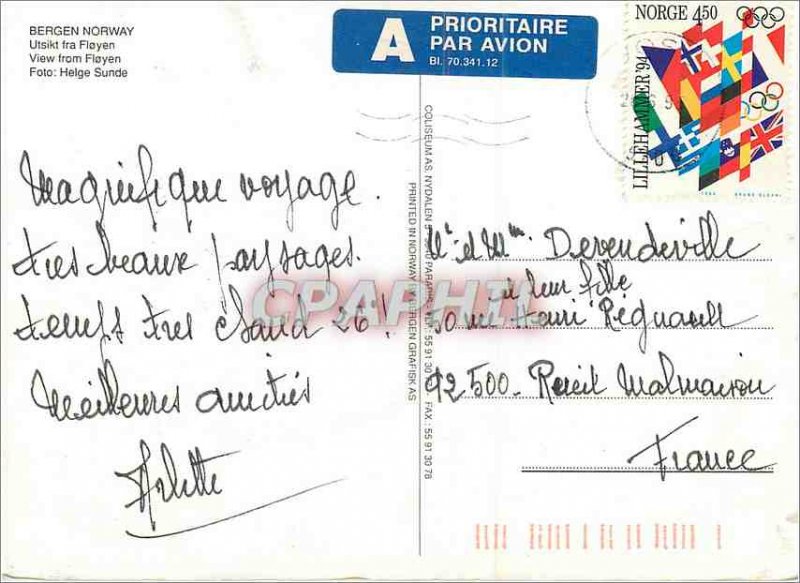 BERGEN NORWAY
Utsikt fra Fløyen
View from Fløyen
Foto: Helge Sunde
A PRIORITAIRE
PAR AVION
Bl. 70.341.12
NORGE 4.50
LILLEHAMMER'94
Magnifique voyage.
très beaux paysages.
temps très chaud 26°!
Meilleures amitiés
Arlette
COLISEUM AS, NYDALEN
PRINTED IN NORWAY BY BERGEN GRAFISK AS
55 91 30
FAX: 55 91 30 78
CPAPHIL
Mr et Mm Devendeville
et leur fille
30 rue Henri Régnault
92500 - Rueil Malmaison
France